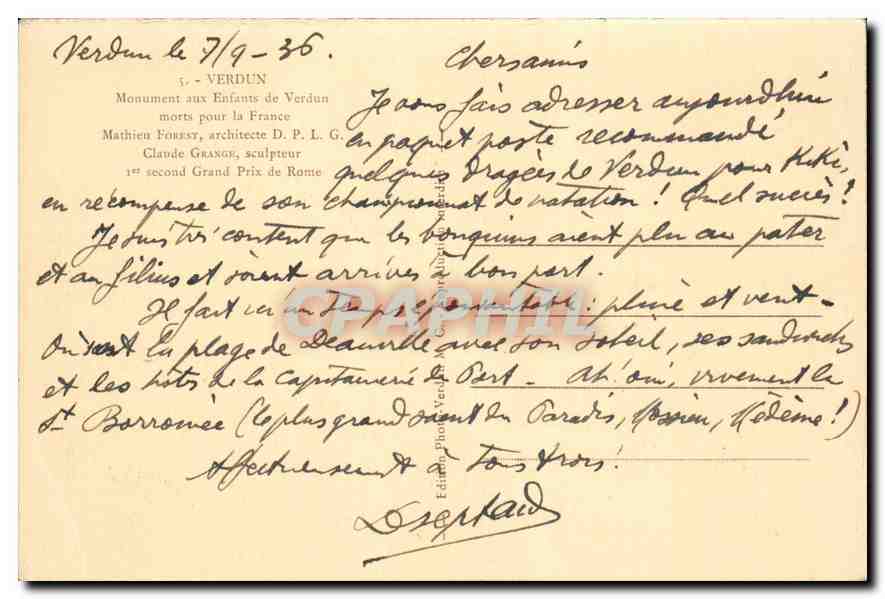 Verdun le 7/9-36.
5. - VERDUN
Monument aux Enfants de Verdun
morts pour la France
Mathieu FOREST, architecte D. P. L. G.
Claude GRANGE, sculpteur
1er second Grand Prix de Rome
Chers amis
Je vous fais adresser aujourd'hui
en paquet poste recommandé
quelques dragées de Verdun pour Kiki,
en récompense de son championnat de natation ! Quel succès !
Je suis très content que les bouquins aient plu au pater
et au filius et soient arrivés à bon port.
Il fait ici un temps épouvantable : pluie et vent -
Où sont la plage de Deauville avec son soleil, ses sandwichs
et les hôtes de la Capitainerie du Port - Ah ! oui, vivement la
St Borromée (le plus grand saint du Paradis, Mossieu, Médème !)
Affectueusement à tous trois !
Edition Photo Verdun
CPAPHIL